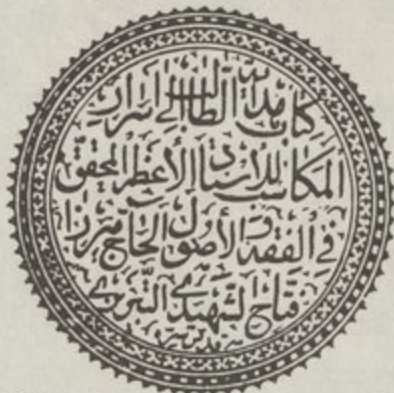 كتاب هداية الطالب إلى اسرار
المكاسب للأستاذ الأعظم المحقق
في الفقه والأصول الحاج ميرزا
فتاح الشهيدي التبريزي